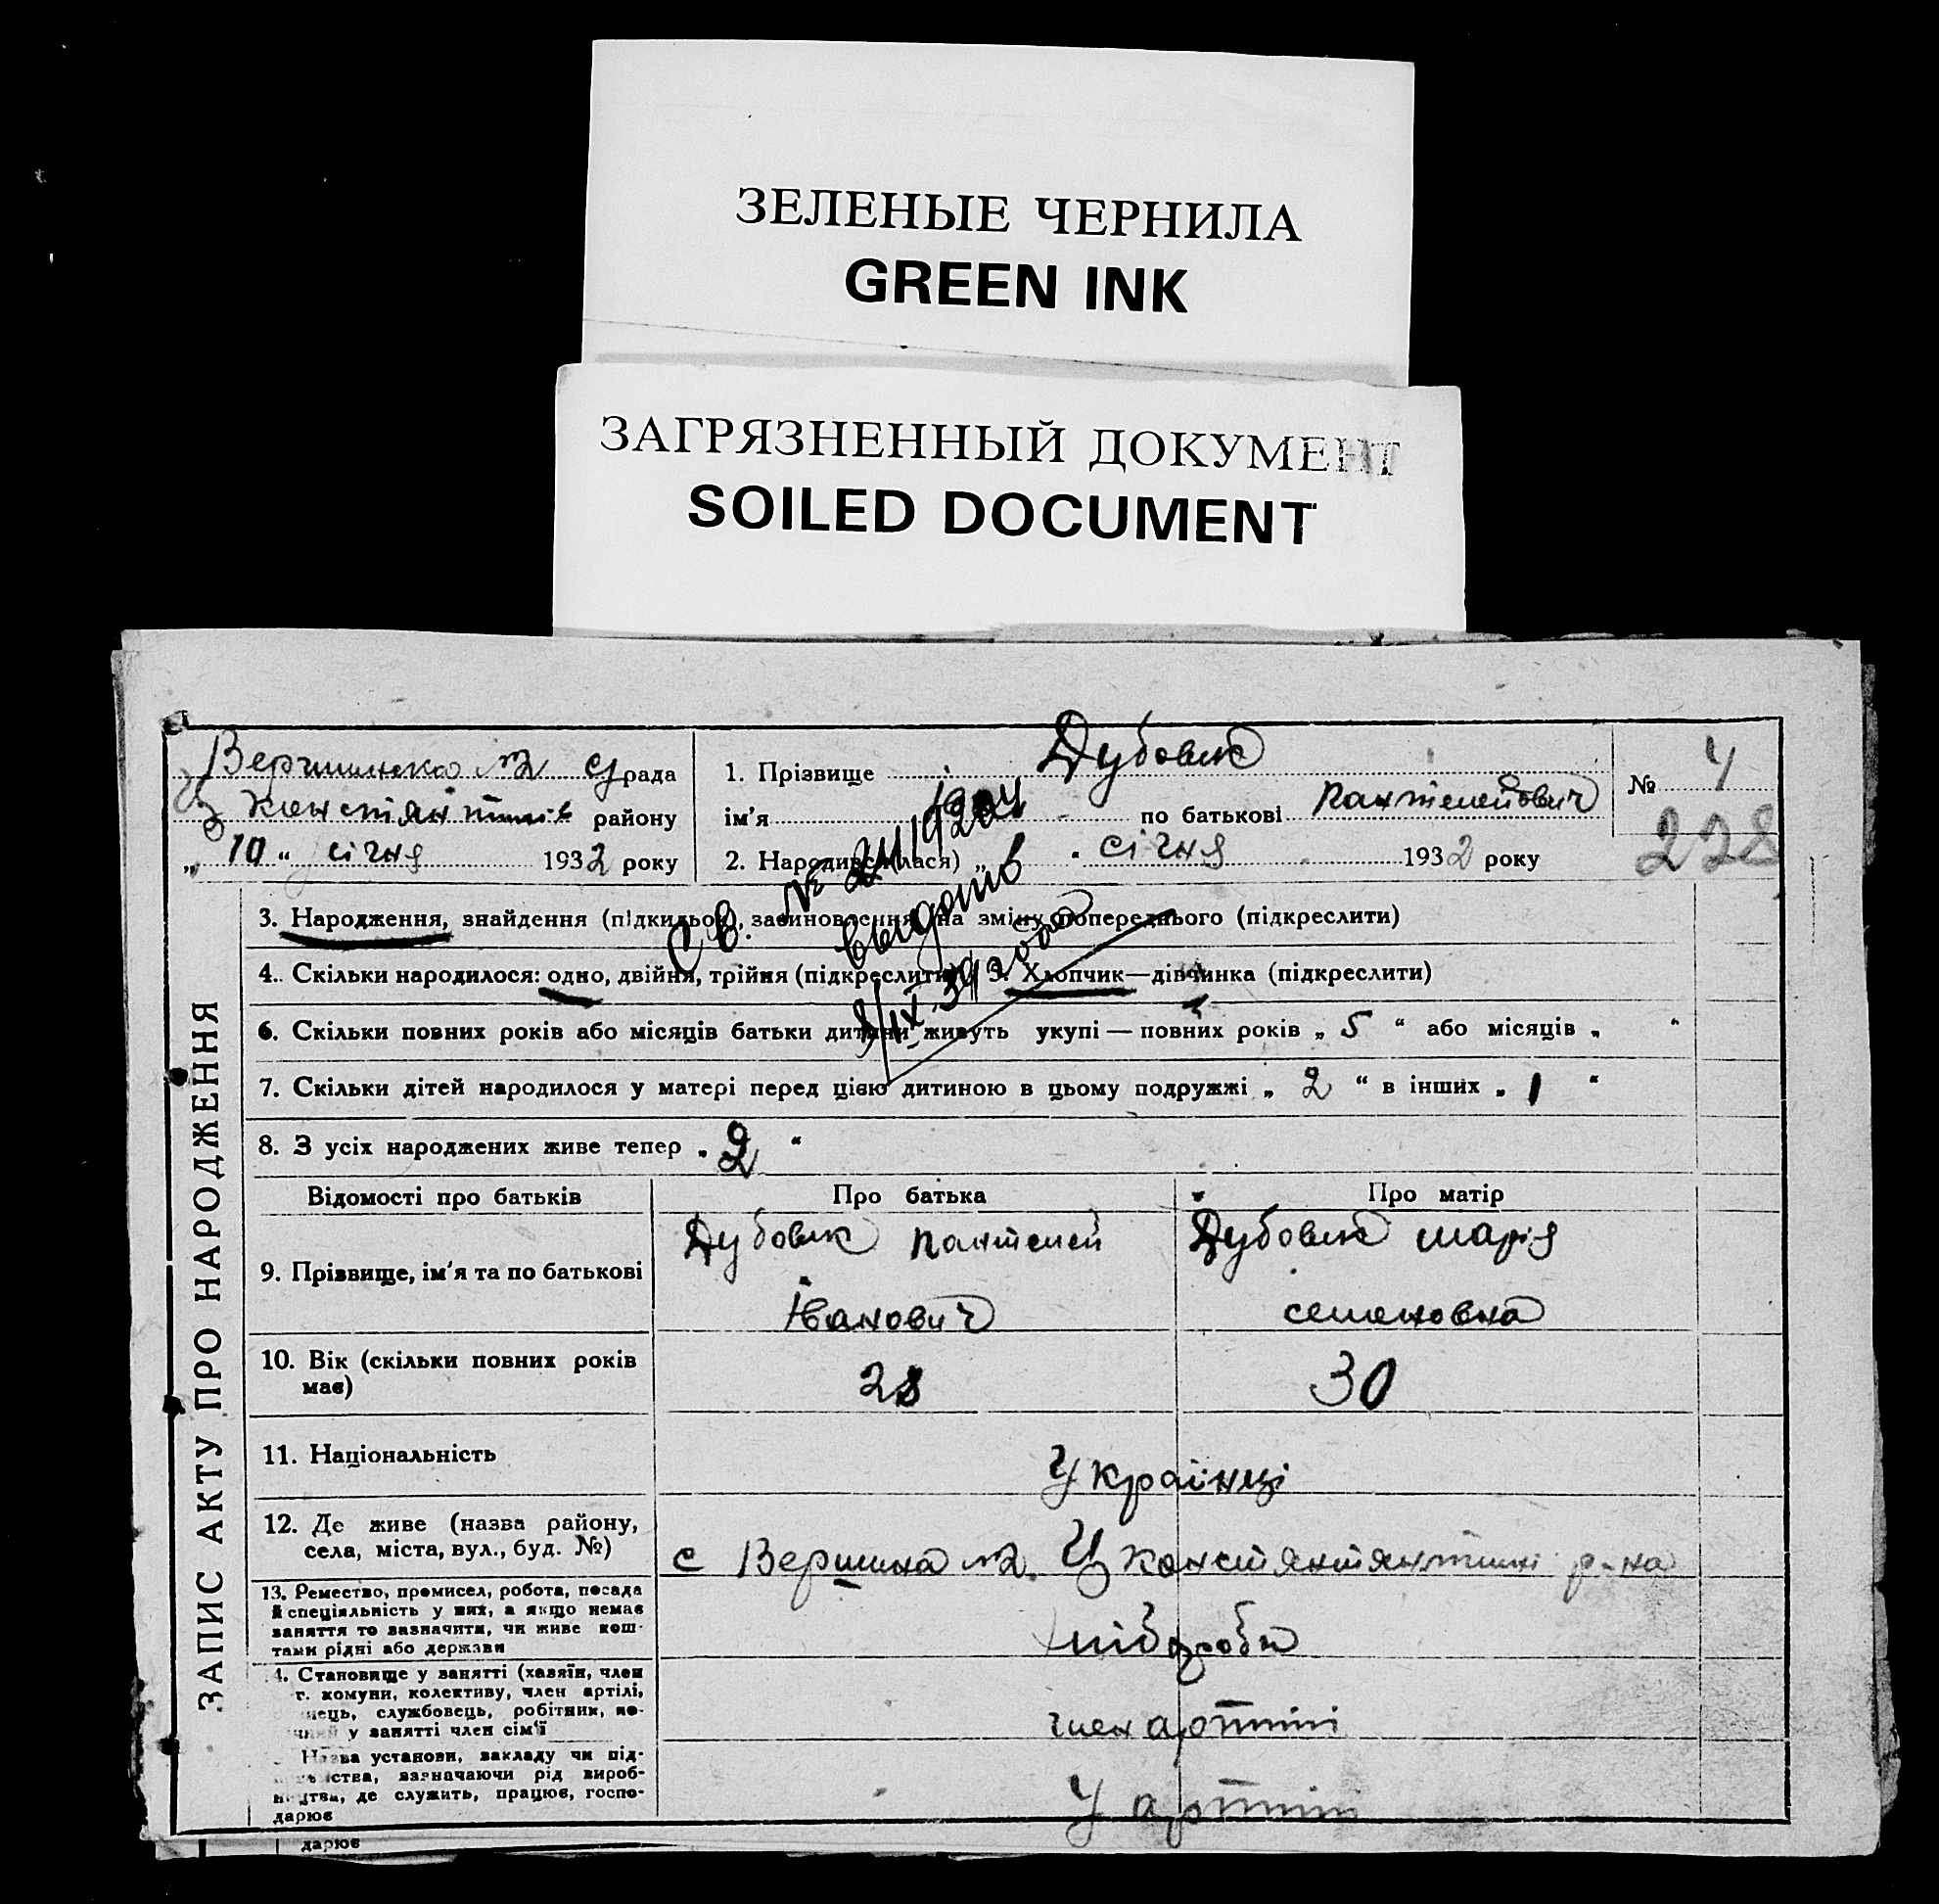 ЗЕЛЕНЫЕ ЧЕРНИЛА
GREEN INK
ЗАГРЯЗНЕННЫЙ ДОКУМЕНТ
SOILED DOCUMENT
ЗАПИС АКТУ ПРО НАРОДЖЕННЯ
Вершинска №2 с/рада
району
„ 10 “ січня 1932 року
1. Прізвище Дубовик
ім'я по батькові Пантелейович
2. Народився(лася) „ “ січня 1932 року
№ 4
228
Св. № 241920
выдано в
3. Народження, знайдення (підкидьок), заановлення на зміну попереднього (підкреслити)
4. Скільки народилося: одно, двійня, трійня (підкреслити) 5. Хлопчик—дівчинка (підкреслити)
6. Скільки повних років або місяців батьки дитини живуть укупі — повних років „ 5 “ або місяців „ “
7. Скільки дітей народилося у матері перед цією дитиною в цьому подружжі „ 2 “ в інших „ 1 “
8. З усіх народжених живе тепер „ 2 “
Відомості про батьків Про батька Про матір
9. Прізвище, ім'я та по батькові
Дубовик Пантелей
Іванович
Дубовик Марія
Семеновна
10. Вік (скільки повних років
має)
28 30
11. Національність
Українці
12. Де живе (назва району,
села, міста, вул., буд. №)
с Вершина №2. р-на
13. Ремество, промисел, робота, посада
й спеціяльність у них, а якщо немає
заняття то зазначити, чи живе кош-
тами рідні або держави
хлібороби
4. Становище у занятті (хазяїн, член
г. комуни, колективу, член артілі,
службовець, робітник, по-
у занятті член сім'ї
член артілі
Назва установи, закладу чи під-
ства, зазначаючи рід вироб-
цтва, де служить, працює, госпо-
дарює
У артілі
дарює